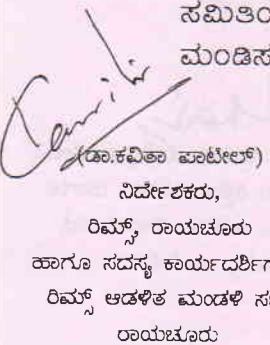 ಮಂಡಿಸ
(ಡಾ.ಕವಿತಾ ಪಾಟೀಲ್)
ನಿರ್ದೇಶಕರು,
ರಿಮ್ಸ್, ರಾಯಚೂರು
ಹಾಗೂ ಸದಸ್ಯ ಕಾರ್ಯದರ್ಶಿಗ
ರಿಮ್ಸ್ ಆಡಳಿತ ಮಂಡಳಿ ಸ
ರಾಯಚೂರು